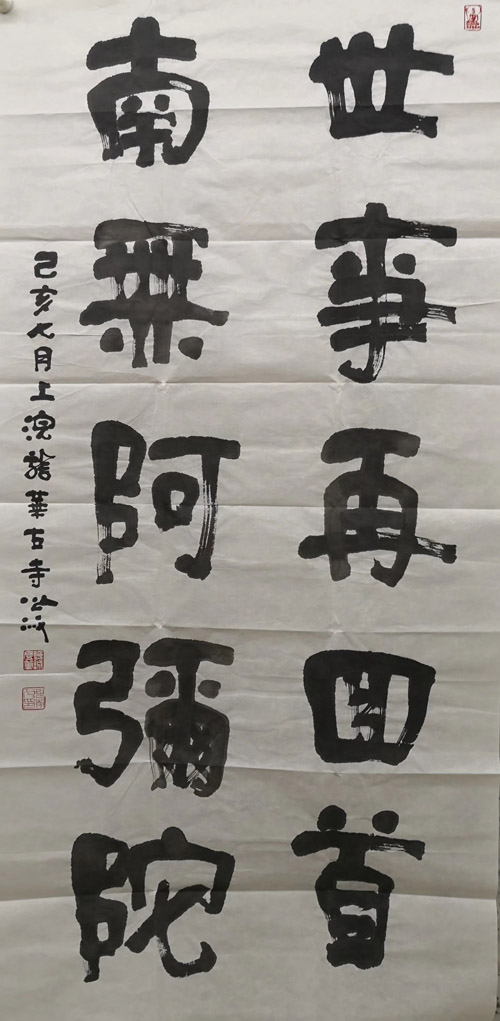 世事再回首
南無阿彌陀
己亥七月上浣龍華古寺